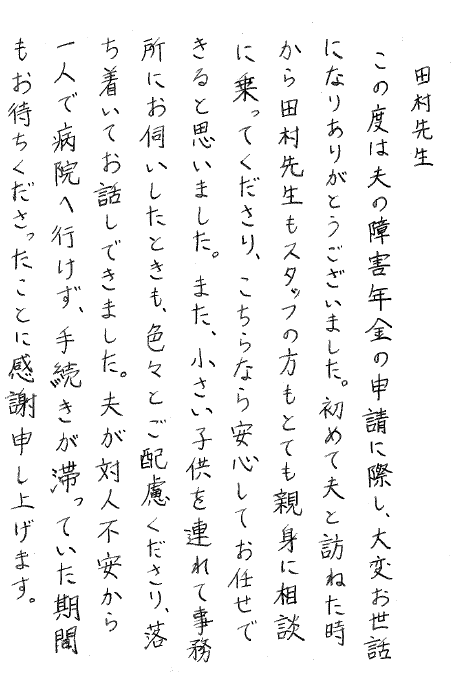 田村先生
この度は夫の障害年金の申請に際し、大変お世話
になりありがとうございました。初めて夫と訪ねた時
から田村先生もスタッフの方もとても親身に相談
に乗ってくださり、こちらなら安心してお任せで
きると思いました。また、小さい子供を連れて事務
所にお伺いしたときも、色々とご配慮くださり、落
ち着いてお話しできました。夫が対人不安から
一人で病院へ行けず、手続きが滞っていた期間
もお待ちくださったことに感謝申し上げます。